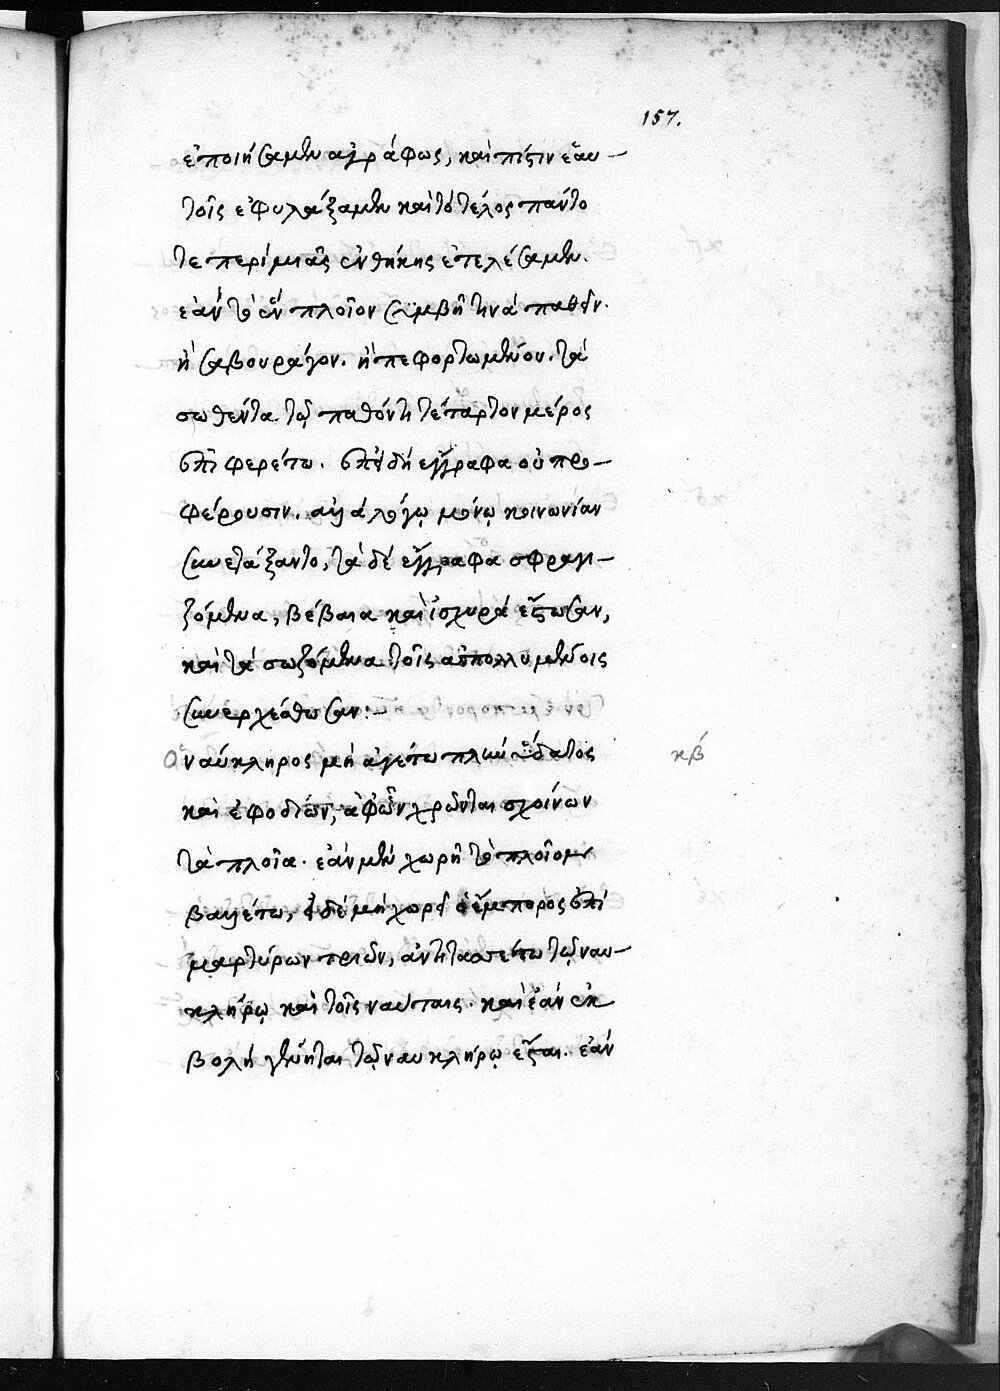 157.
ἐποιήσαμεν ἀγράφως, καὶ πίστιν ἑαυ-
τοῖς ἐφυλάξαμεν καὶ τὸ τέλος πάντο
τε περὶ μιᾶς ἐνθήκης ἐτελέσαμεν.
ἐὰν τὸ ἓν πλοῖον συμβῆ τινὰ παθεῖν.
ἢ σαβουράτον. ἢ πεφορτωμένον. τὰ
σωθέντα τῷ παθόντι τέταρτον μέρος
ἐπιφερέτω. ἐπειδὴ ἔγγραφα οὐ προ-
φέρουσιν. ἀλλὰ λόγῳ μόνῳ κοινωνίαν
συνετάξαντο, τὰ δὲ ἔγγραφα σφραγι-
ζόμενα, βέβαια καὶ ἰσχυρὰ ἔστωσαν,
καὶ τὰ σωζόμενα τοῖς ἀπολλυμένοις
συνερχέσθωσαν:-
Ὁ ναύκληρος μὴ ἀγέτω πλὴν ὕδατος κβ
καὶ ἐφοδίων, ἀφ' ὧν χρῶνται σχοίνων
τὰ πλοῖα. ἐὰν μὲν χωρῆ τὸ πλοῖον
βαλλέτω, εἰ δὲ μὴ χωρεῖ ὁ ἔμπορος ἐπὶ
μαρτύρων τριῶν, ἀντιτασσέτω τῷ ναυ-
κλήρῳ καὶ τοῖς ναύταις. καὶ ἐὰν ἐκ
βολὴ γένηται τῷ ναυκλήρῳ ἔσται. ἐὰν